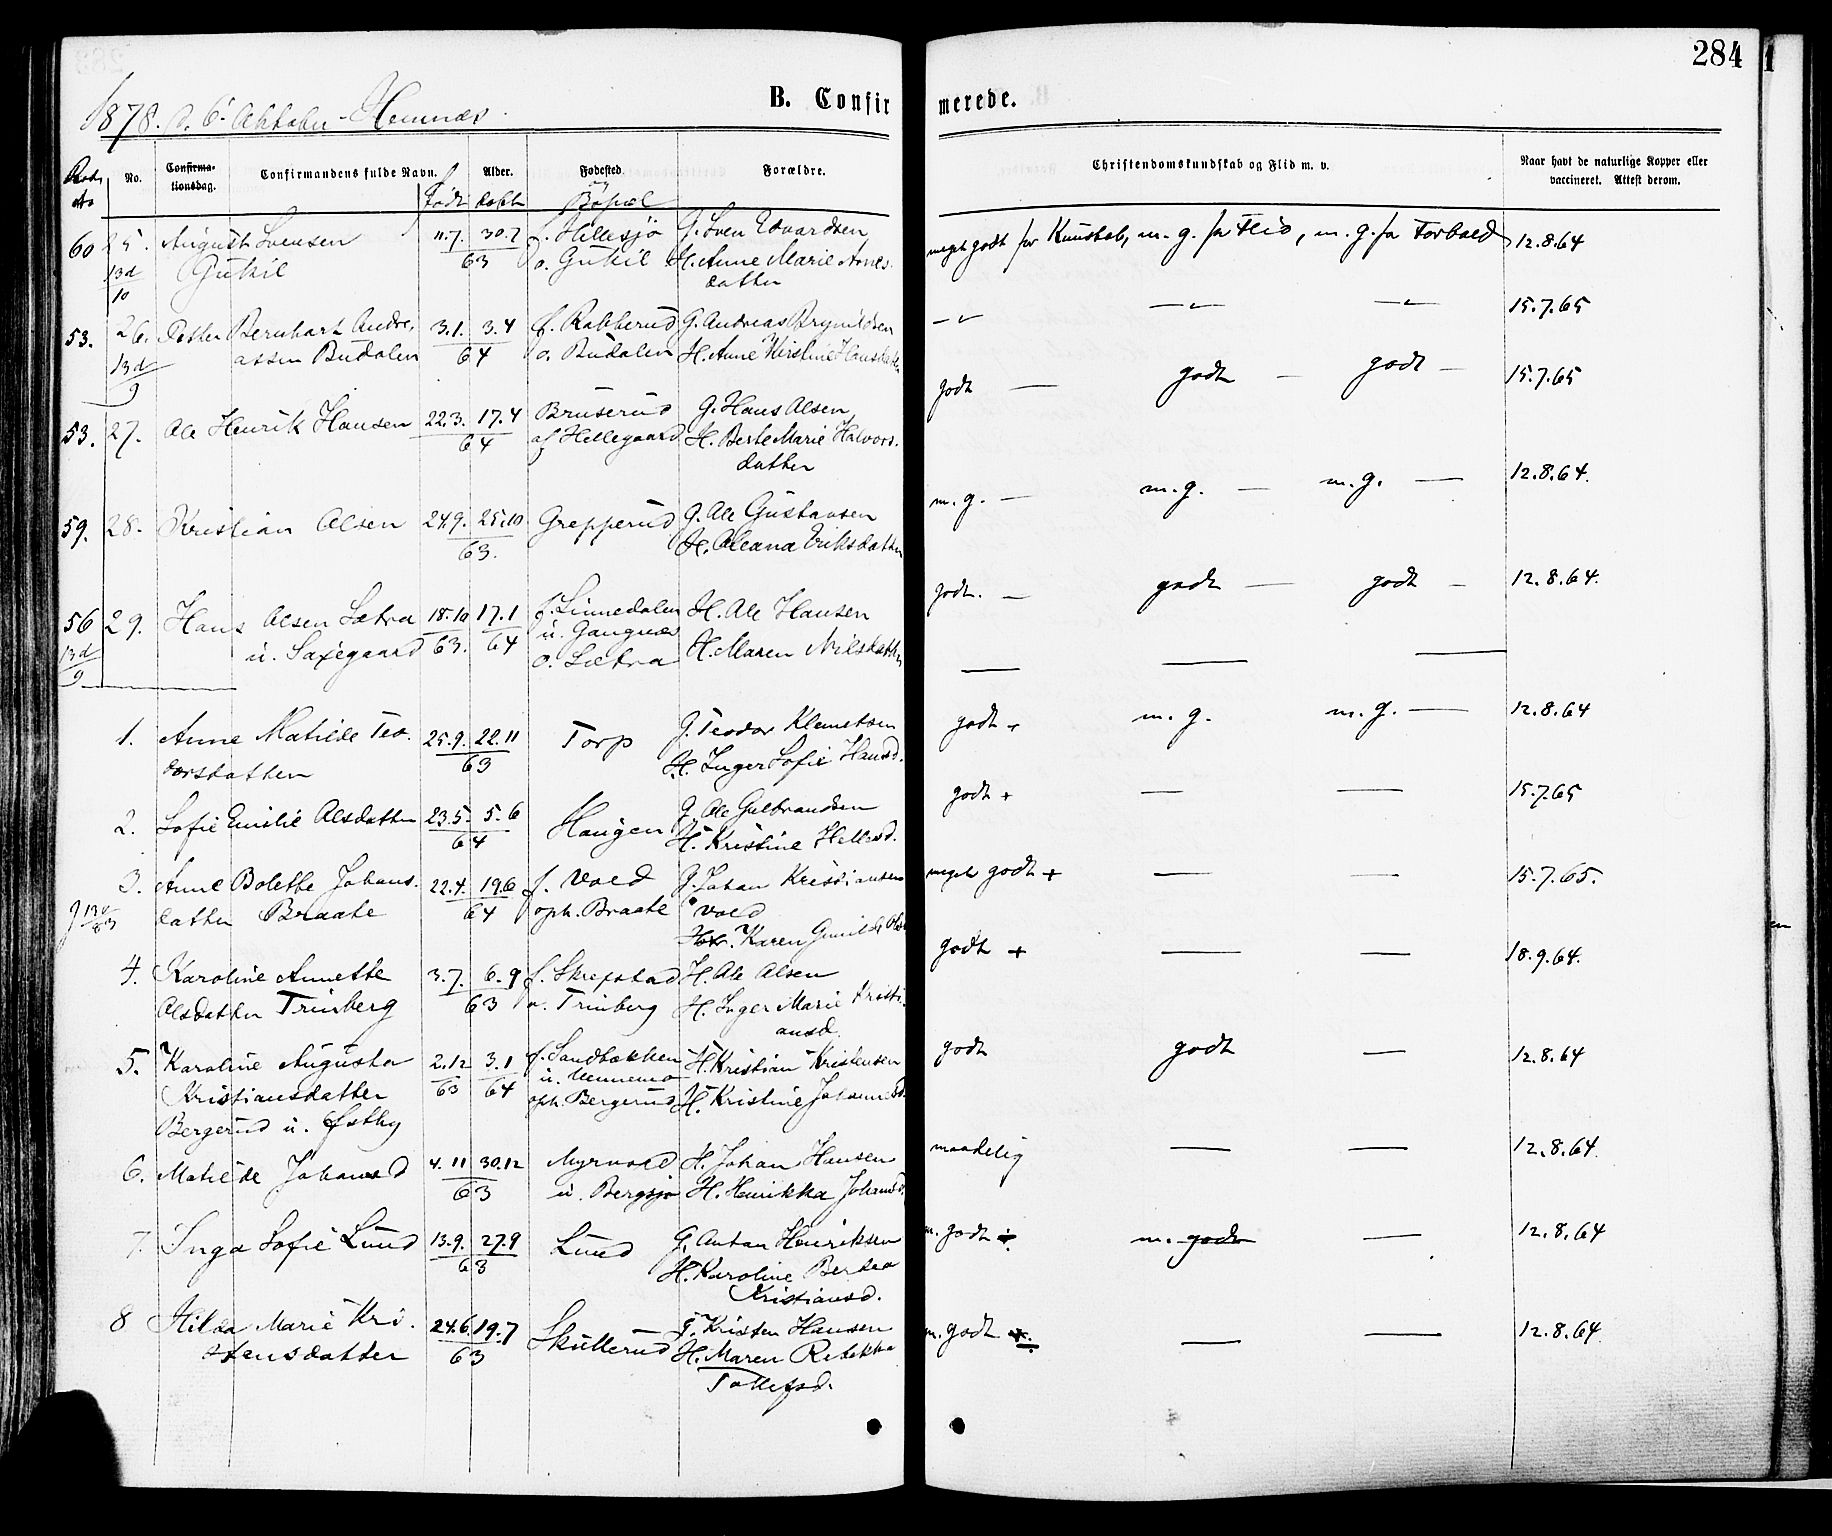 284
1878. d. 6. Oktober - Hemnæs.
B. Confir merede.
No. Confirmationsdag. Confirmandens fulde Navn. Alder. Fødested. Forældre. Christendomskundskab og Flid m. v. Naar havt de naturlige Kopper eller vaccineret. Attest derom.
Født Døbt Bopæl
60 25. August Svensen 11.7. 30.7 f. Hillesjø G. Sven Edvardsen meget godt for Kundskab, m. g. for Flid, m. g. for Forhold 12.8.64
13d 63 o. H. Anne Marie
10 datter
53. 26. Petter Bernhart Andre- 3.1. 3.4 f. Rakkerud G. Andreas Brynildsen 15.7.65
13d assen Budalen 64 o. Budalen H. Anne Kirstine
9
53. 27. Ole Henrik Hansen 22.3. 17.4 Bruserud G. Hans Olsen godt — godt — godt — 15.7.65
64 af Hellegaard H. Berte Marie Halvors-
datter
59. 28. Kristian Olsen 24.9. 25.10 Grepperud G. Ole Gustavsen m. g. — m. g. — m. g. — 12.8.64.
63. H. Oleana Eriksdatter
56 29. Hans Olsen Sætra 18.10 17.1 f. Linnedalen H. Ole Hansen godt. — godt — godt — 12.8.64.
13d u. Saxegaard 63. 64 u. Gangnæs
9 o. Sætra H. Maren Nilsdatter
1. Anne Matilde Teo- 25.9. 22.11 Torp G. Teodor Klemetsen godt + m. g. m. g. — 12.8.64
dorsdatter 63 H. Inger Sofie Hansd.
2. Sofie Emilie Olsdatter 23.5. 5.6 Haugen G. Ole Gulbrandsen godt + — — 15.7.65
64 H. Kristine Hellesd.
3. Anne Bolette Johans- 22.4. 19.6 f. Vold G. Johan Kristiansen meget godt + — — 15.7.65.
datter Braate 64 oph. Braate Vold
Karen Gunilde
4. Karoline Annette 3.7. 6.9 f. Skrepstad H. Ole Olsen godt + — — 18.9.64.
Olsdatter Trinberg 63 o. Trinberg H. Inger Marie Kristi-
ansd.
5. Karoline Augusta 2.12 3.1 f. Sandbækken H. Kristian Kristensen godt godt — 12.8.64
Kristiansdatter 63 64 u.
oph. Bergerud H. Kristine
Bergerud u. Østby
6. Matilde Johansd 4.11 30.12 Myrvold H. Johan Hansen maadelig — — 12.8.64.
63 u. Bergsjø H. Henrikka Johansd.
7. Inga Sofie Lund 13.9. 27.9 Lund G. Anton Henriksen m. godt m. godt — 12.8.64
63 H. Karoline Bertea
Kristiansd.
8 Hilda Marie Kri- 24.6. 19.7 Skullerud Kristen Hansen m. godt — — 12.8.64.
stensdatter 63 H. Maren Rebekka
Tollefsd.